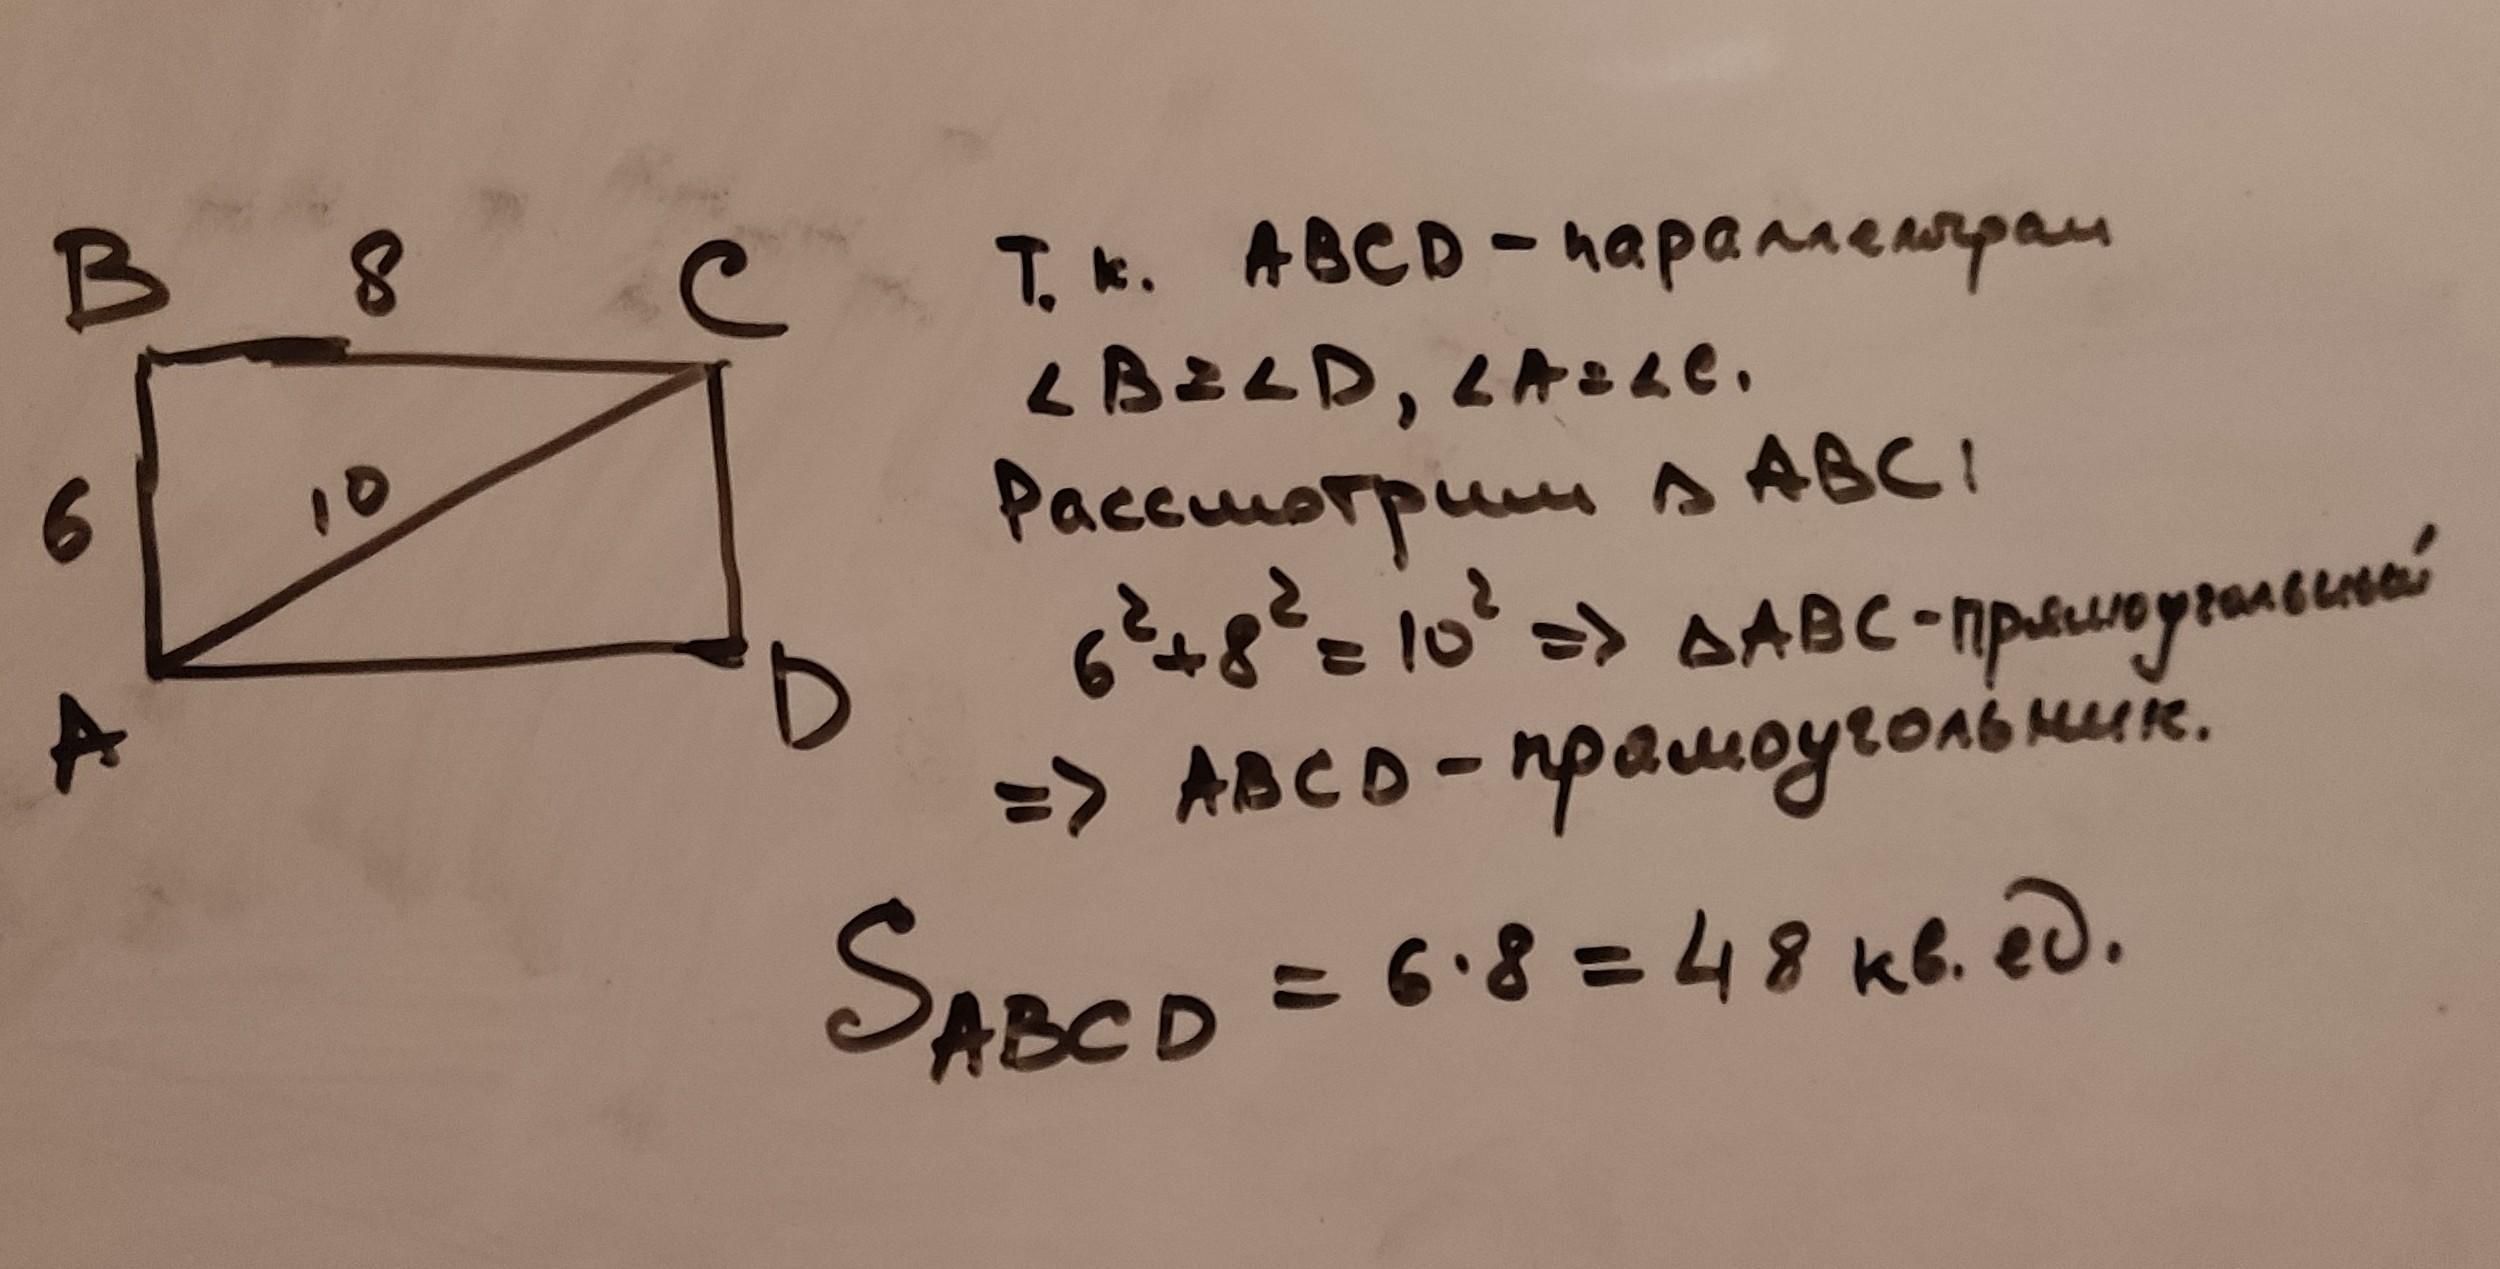 B 8 C
6 10
A D
Т.к. ABCD - параллелограм
∠B=∠D, ∠A=∠C.
Рассмотрим Δ ABC:
6²+8²=10² => ΔABC-прямоугольный
=> ABCD - прямоугольник.
S_ABCD = 6·8 = 48 кв. ед.